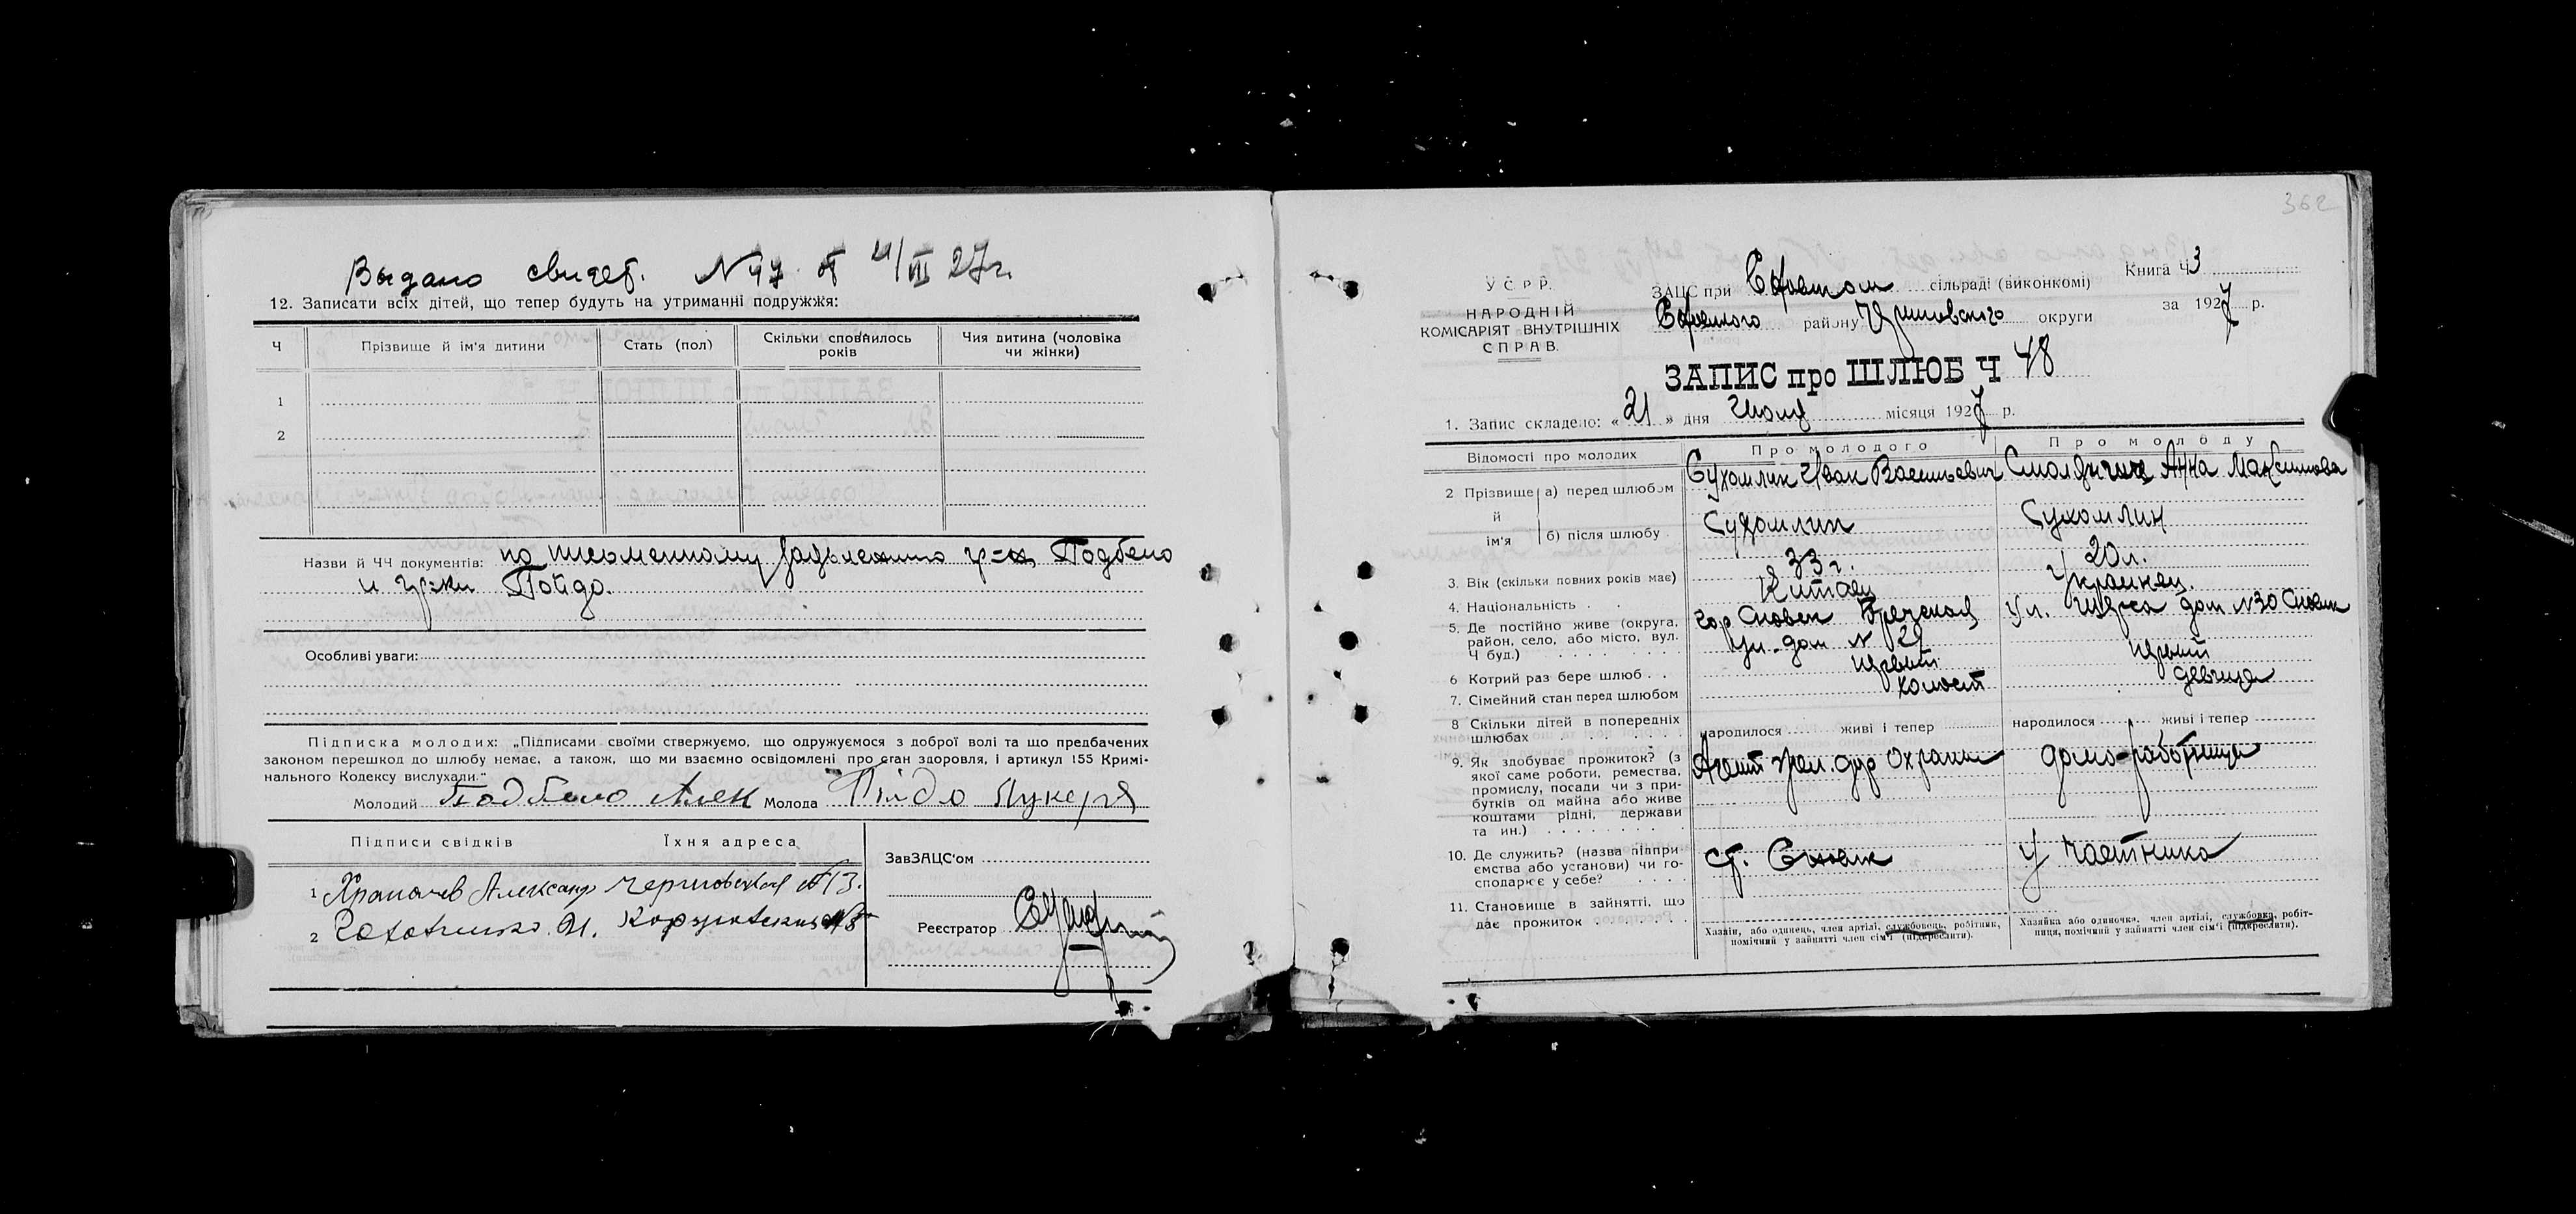 Выдано свидет. N 47 от 21/VII 27 г.
12. Записати всіх дітей, що тепер будуть на утриманні подружжя:
Ч Прізвище й ім'я дитини Стать (пол) Скільки сповнилось років Чия дитина (чоловіка чи жінки)
1
2
Назви й ЧЧ документів: по письменному гр-на Подбело
и гр-ки Пойдо.
Особливі уваги:
Підписка молодих: „Підписами своїми стверджуємо, що одружуємося з доброї волі та що предбачених
законом перешкод до шлюбу немає, а також, що ми взаємно освідомлені про стан здоровля, і артикул 155 Кримі-
нального Кодексу вислухали."
Молодий Подбело Алек Молода Пойдо Лукерья
Підписи свідків Їхня адреса
1 Храпачев Александр Черниговская N 13.
2 И.
ЗавЗАЦС'ом
Реєстратор
362
У.С.Р.Р.
НАРОДНІЙ
КОМІСАРІЯТ ВНУТРІШНІХ
СПРАВ.
ЗАЦС при сільраді (виконкомі)
району округи
Книга Ч 3
за 1927 р.
ЗАПИС про ШЛЮБ Ч 48
1. Запис складено: « 21 » дня Июля місяця 1927 р.
Відомості про молодих Про молодого Про молоду
2 Прізвище й ім'я а) перед шлюбом Сухомлин Иван Васильевич Анна Максимова
б) після шлюбу Сухомлин Сухомлин
3. Вік (скільки повних років має) 33 г. 20 л.
4. Національність Китаец Украинец.
5. Де постійно живе (округа, район, село, або місто, вул. Ч буд.) гор Сновск ул. дом N 29 ул. Щорса дом N 30 Сновск
6 Котрий раз бере шлюб первый первый
7. Сімейний стан перед шлюбом холост девица
8 Скільки дітей в попередніх шлюбах народилося живі і тепер народилося живі і тепер
9. Як здобуває прожиток? (з якої саме роботи, ремества, промислу, посади чи з прибутків од майна або живе коштами рідні, держави та ин.) Агент Охраны домо-работница
10. Де служить? (назва підприємства або установи) чи господарює у себе? ст. Сновск у частника
11. Становище в зайнятті, що дає прожиток
Хазяїн, або одинець, член артілі, службовець, робітник, помічний у зайнятті член сім'ї (підкреслити).
Хазяйка або одиночка, член артілі, службовка, робітниця, помічний у зайнятті член сім'ї (підкреслити).